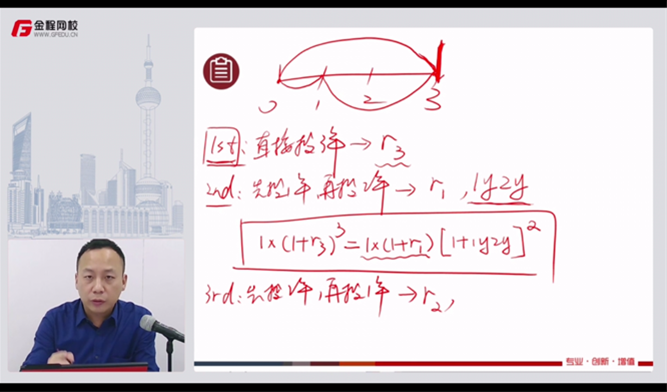 金程网校
WWW.GFEDU.CN
0 1 2 3
1st: 直接投3年 → r₃
2nd: 先投1年, 再投2年 → r₁, 1y2y
1×(1+r₃)³ = 1×(1+r₁)[1+1y2y]²
3rd: 先投2年, 再投1年 → r₂,
专业·创新·增值